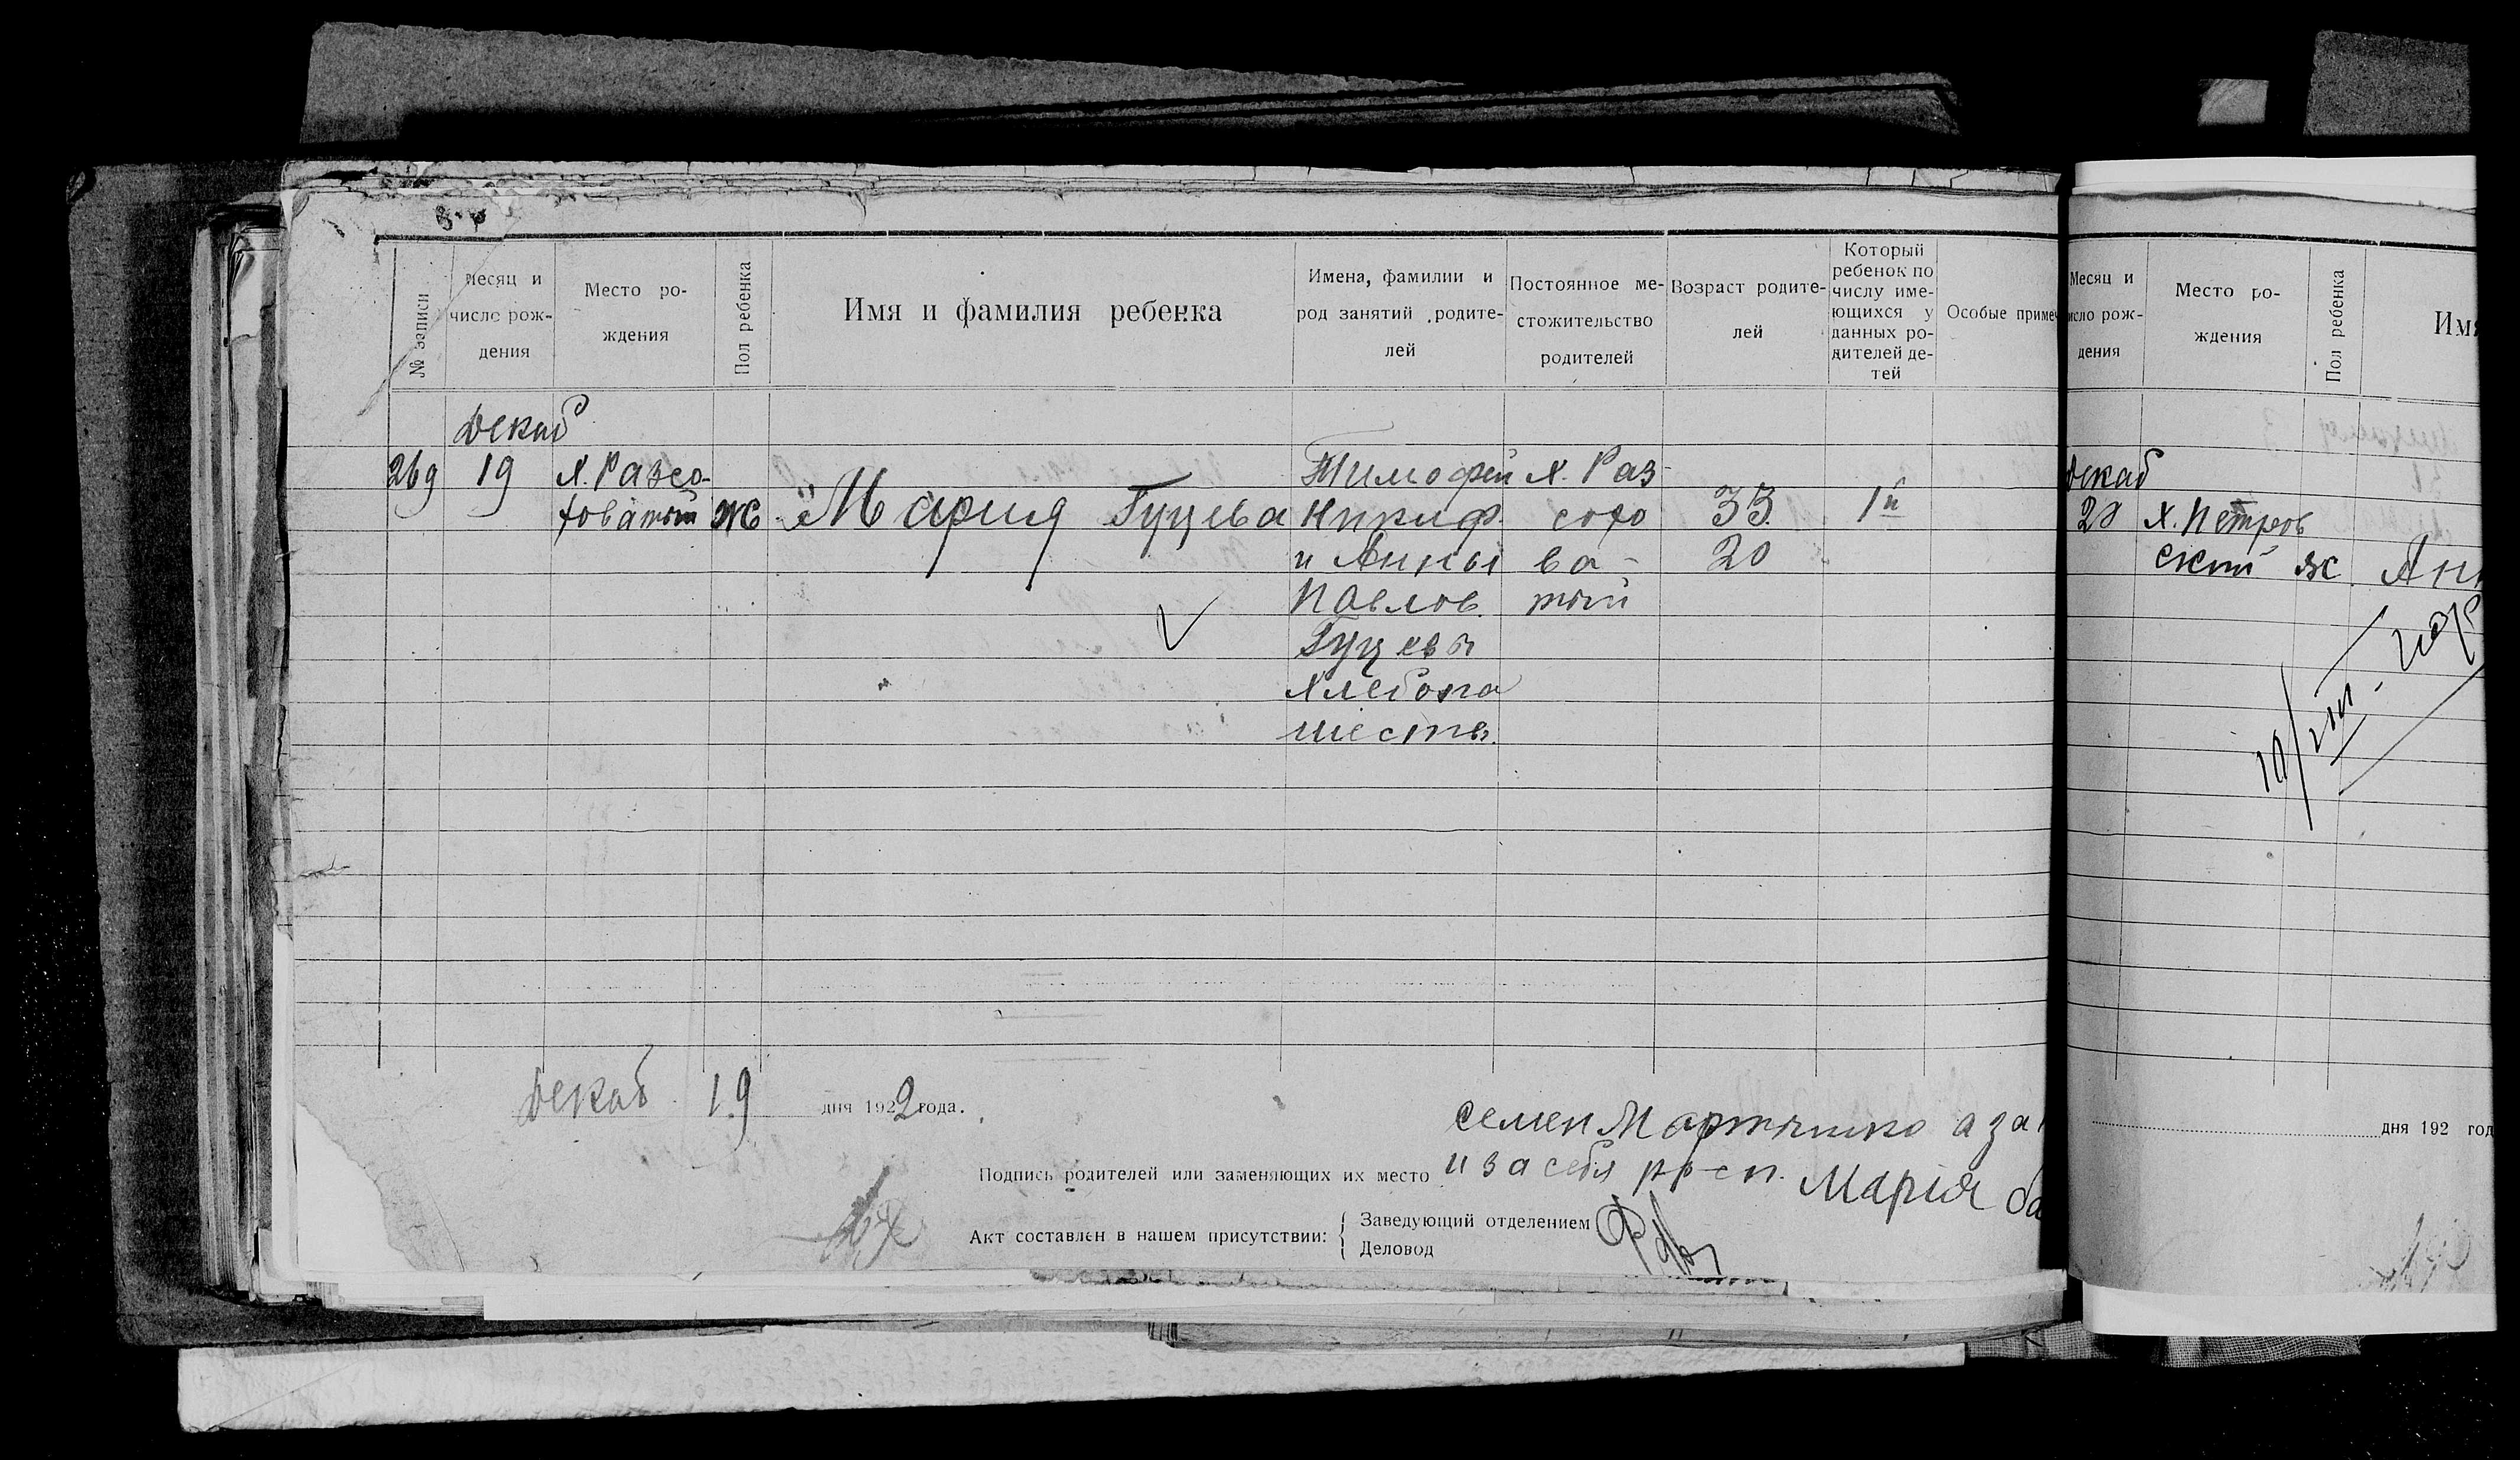 № записи
Месяц и число рождения
Место ро-
ждения
Пол ребенка
Имя и фамилия ребенка
Имена, фамилии и
род занятий родите-
лей
Постоянное ме-
стожительство
родителей
Возраст родите-
лей
Который
ребенок по
числу име-
ющихся у
данных ро-
дителей де-
тей
Особые примеч
Декаб
269 19 х. Разсо-
ховатый ж Мария Гуцева
Тимофей
Никиф.
и Анны
Павлов.
Гуцевы
хлебопа
шество.
х. Раз-
сохо
ва-
тый
33
20
1й
Декаб 19 дня 1922 года.
Семен Мартыненко а за
Подпись родителей или заменяющих их место и за себя росп. Мария
Акт составлен в нашем присутствии:
Заведующий отделением
Деловод
Месяц и
число рож-
дения
Место ро-
ждения
Пол ребенка
Имя
Декаб
20 х. Петров
ский ж Анн
дня 192 год